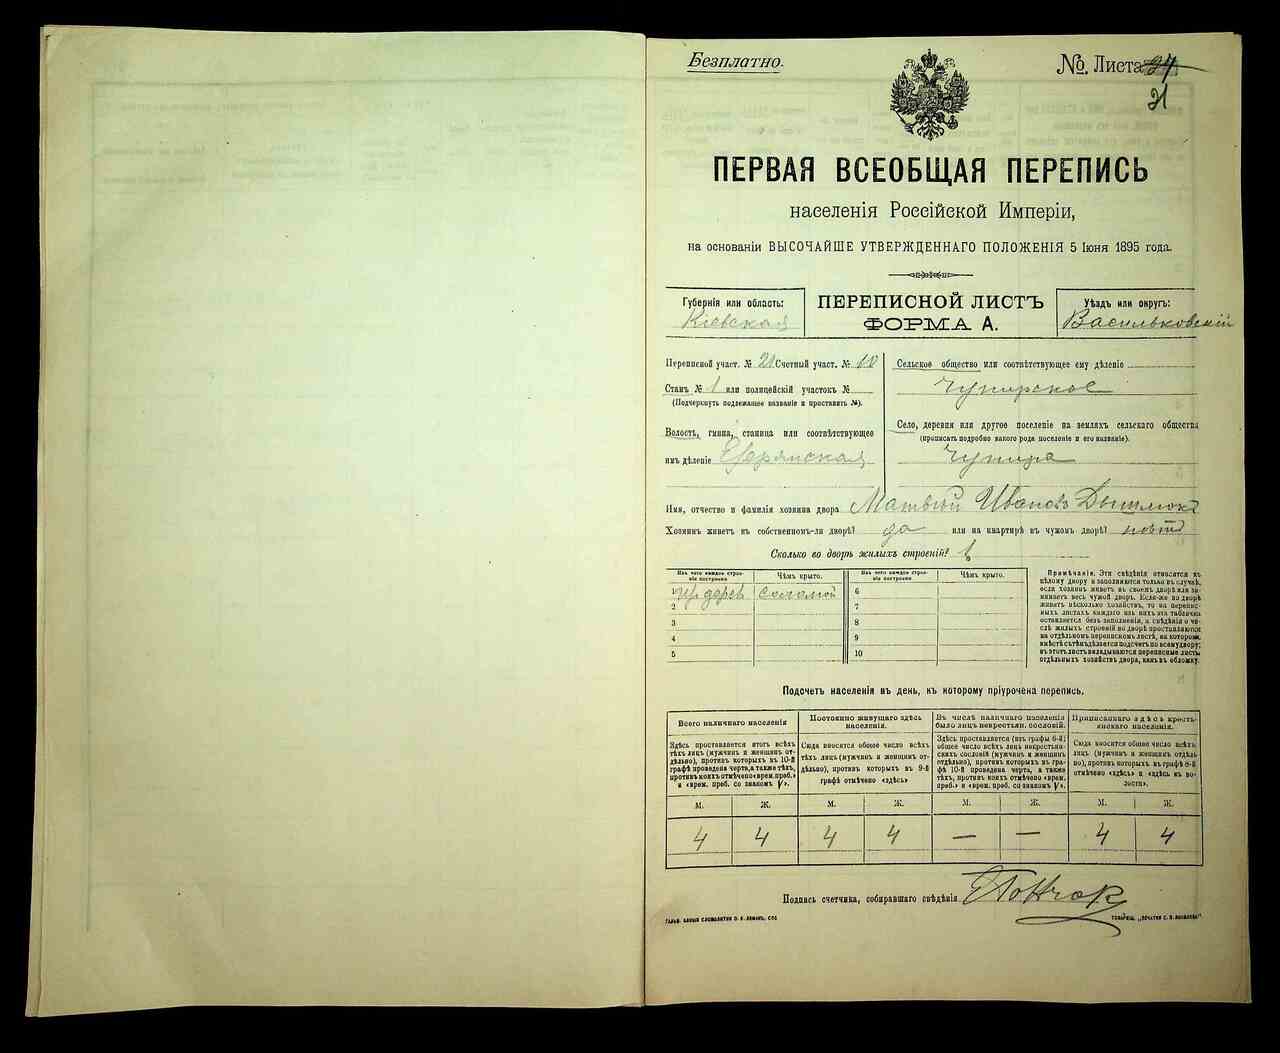 Безплатно.
№. Листа 24
21
ПЕРВАЯ ВСЕОБЩАЯ ПЕРЕПИСЬ
населенія Россійской Имперіи,
на основаніи ВЫСОЧАЙШЕ УТВЕРЖДЕННАГО ПОЛОЖЕНІЯ 5 Іюня 1895 года.
Губернія или область:
Кіевская
ПЕРЕПИСНОЙ ЛИСТЪ
ФОРМА А.
Уѣздъ или округъ:
Васильковскій
Переписной участ. № 21 Счетный участ. № 10
Станъ № 1 или полицейскій участокъ №
(Подчеркнуть подлежащее названіе и проставить №).
Волость, гмина, станица или соотвѣтствующее
имъ дѣленіе
Сельское общество или соотвѣтствующее ему дѣленіе
Чупирское
Село, деревня или другое поселеніе на земляхъ сельскаго общества
(прописать подробно какого рода поселеніе и его названіе).
Чупира
Имя, отчество и фамилія хозяина двора Матвѣй Ивановъ Дышлюкъ
Хозяинъ живетъ въ собственномъ-ли дворѣ? да или на квартирѣ въ чужомъ дворѣ?
Сколько во дворѣ жилыхъ строеній?
Изъ чего каждое строе-
ніе построено
Чѣмъ крыто.
Изъ чего каждое строе-
ніе построено
Чѣмъ крыто.
1 соломой 6
2 7
3 8
4 9
5 10
Примѣчаніе. Эти свѣдѣнія относятся къ
цѣлому двору и заполняются только въ случаѣ,
если хозяинъ живетъ въ своемъ дворѣ или за-
нимаетъ весь чужой дворъ. Если-же во дворѣ
живетъ нѣсколько хозяйствъ, то на перепис-
ныхъ листахъ каждаго изъ нихъ эта табличка
оставляется безъ заполненія, а свѣдѣнія о чи-
слѣ жилыхъ строеній во дворѣ проставляются
на отдѣльномъ переписномъ листѣ, на которомъ
вмѣстѣ съ тѣмъ дѣлается подсчетъ по всему двору;
въ этотъ листъ вкладываются переписные листы
отдѣльныхъ хозяйствъ двора, какъ въ обложку.
Подсчетъ населенія въ день, къ которому пріурочена перепись.
Всего наличнаго населенія
Здѣсь проставляется итогъ всѣхъ
тѣхъ лицъ (мужчинъ и женщинъ от-
дѣльно), противъ которыхъ въ 10-й
графѣ проведена черта, а также тѣхъ,
противъ коихъ отмѣчено «врем. преб.»
и «врем. преб. со знакомъ V».
Постоянно живущаго здѣсь
населенія.
Сюда вносится общее число всѣхъ
тѣхъ лицъ (мужчинъ и женщинъ от-
дѣльно), противъ которыхъ въ 9-й
графѣ отмѣчено «здѣсь»
Въ числѣ наличнаго населенія
было лицъ некрестьян. сословій.
Здѣсь проставляется (изъ графы 6-й)
общее число всѣхъ лицъ некрестьян-
скихъ сословій (мужчинъ и женщинъ
отдѣльно), противъ которыхъ въ гра-
фѣ 10-й проведена черта, а также
тѣхъ, противъ коихъ отмѣчено «врем.
преб.» и «врем. преб. со знакомъ V».
Приписаннаго здѣсь кресть-
янскаго населенія.
Сюда вносится общее число всѣхъ
лицъ (мужчинъ и женщинъ отдѣль-
но), противъ которыхъ въ графѣ 8-й
отмѣчено «здѣсь» и «здѣсь въ во-
лости».
М. Ж. М. Ж. М. Ж. М. Ж.
4 4 4 4 — — 4 4
Подпись счетчика, собиравшаго свѣдѣнія